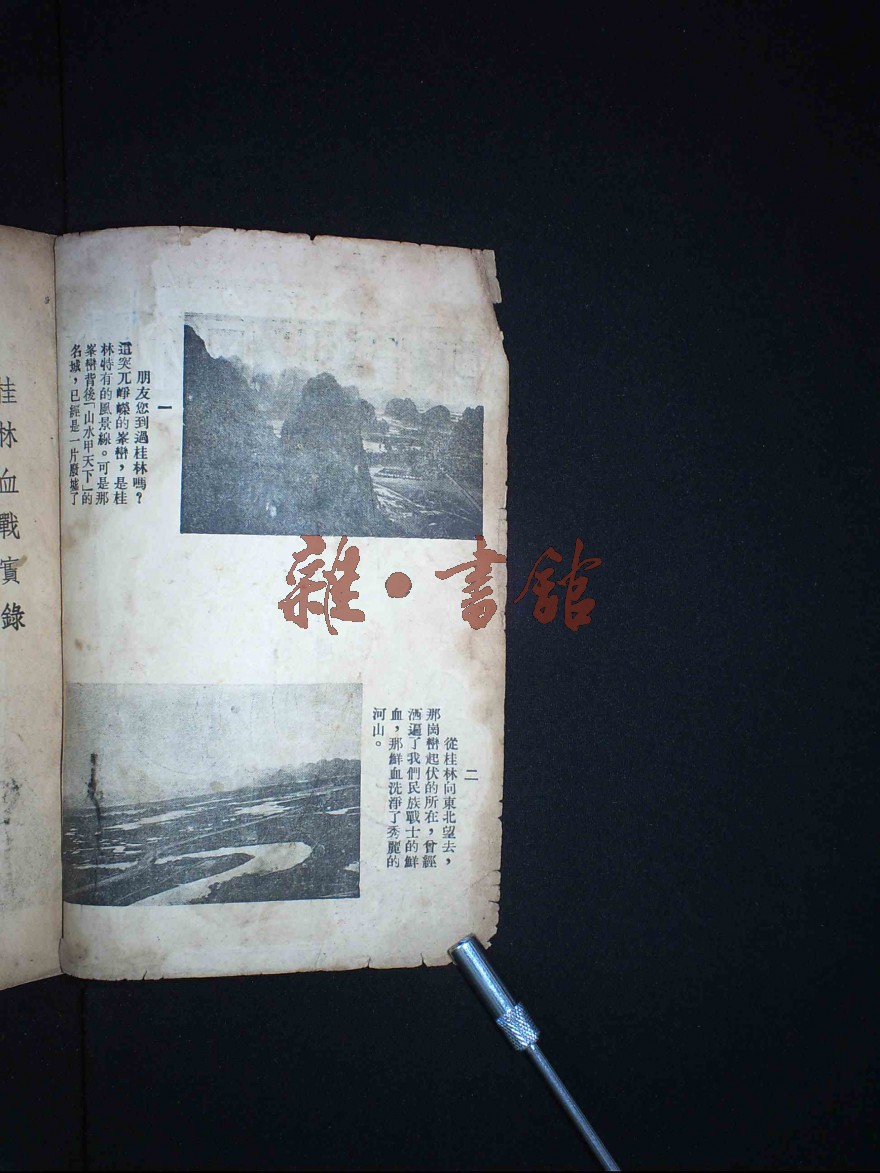 一
朋友您到過桂林嗎？
這突兀崢嶸的峯巒，是桂
林特有的風景線。可是那
峯巒背後「山水甲天下」的
名城，已經是一片廢墟了
二
從桂林向東北望去，
那崗巒起伏的所在，曾經
洒遍了我們民族戰士的鮮
血，那鮮血洗淨了秀麗的
河山。
桂林血戰實錄
雜·書館